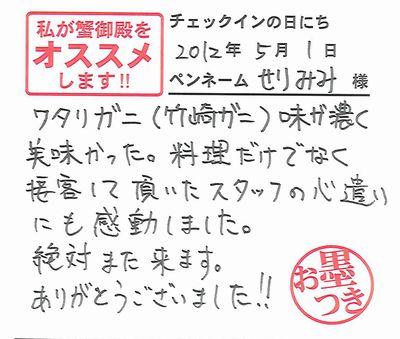 私が蟹御殿を
オススメ
します!!
チェックインの日にち
2012年 5月 1日
ペンネーム せりみみ 様
ワタリガニ(竹崎ガニ)味が濃く
美味かった。料理だけでなく
接客して頂いたスタッフの心遣い
にも感動しました。
絶対また来ます。
ありがとうございました!!
お墨つき